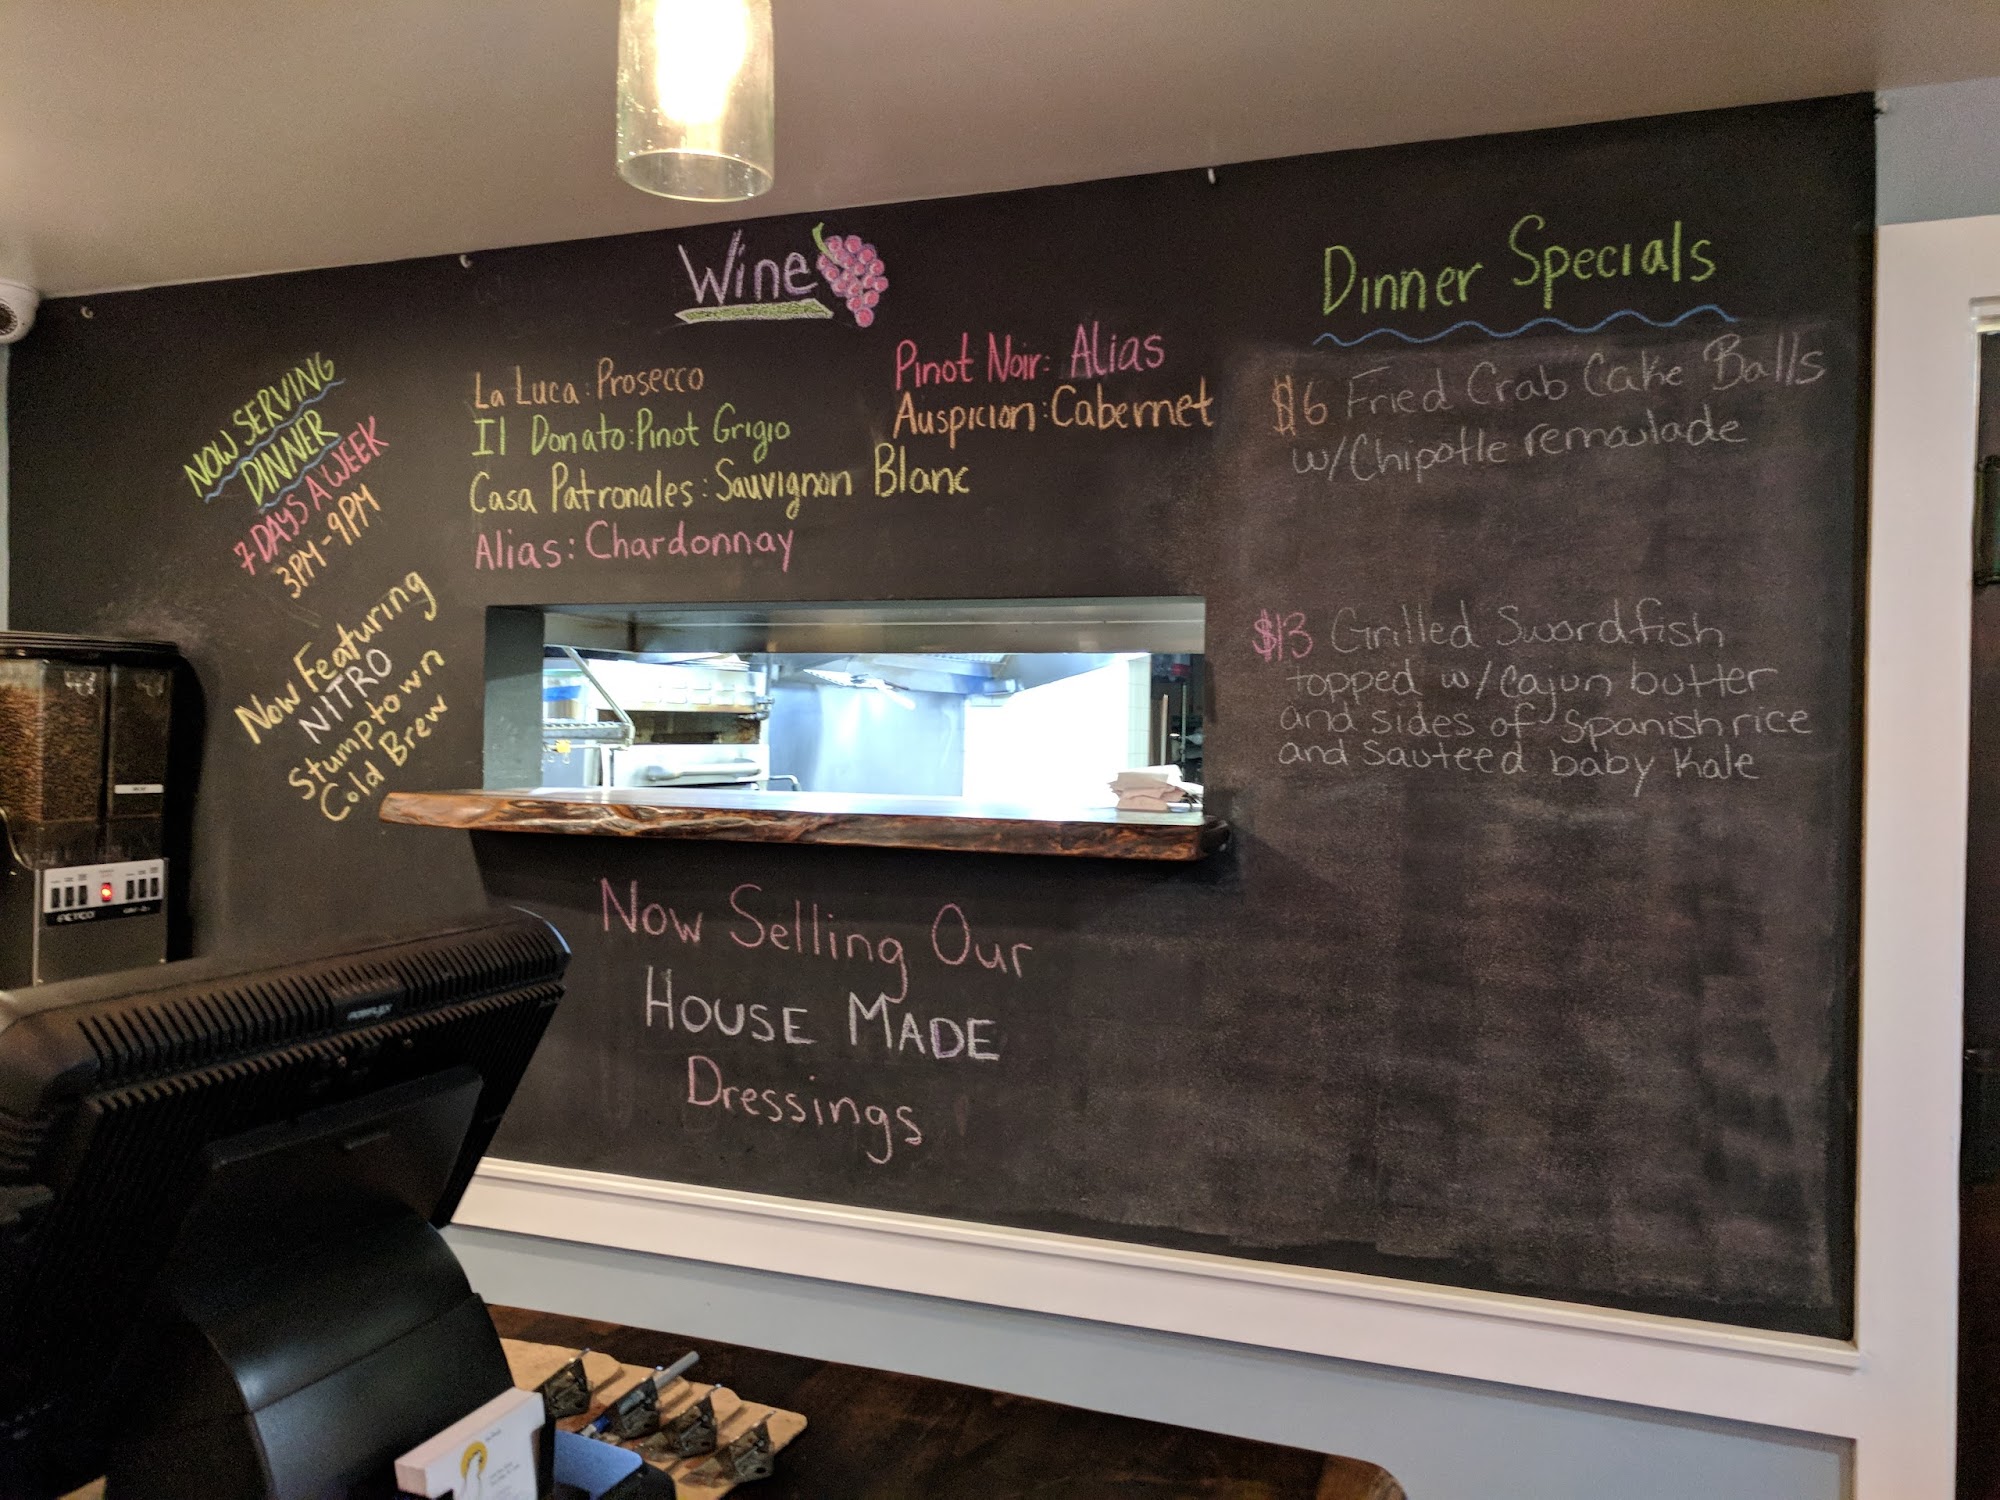 Wine
NOW SERVING
DINNER
7 DAYS A WEEK
3PM - 9PM
Now Featuring
NITRO
Stumptown
Cold Brew
La Luca: Prosecco
Il Donato: Pinot Grigio
Casa Patronales: Sauvignon Blanc
Alias: Chardonnay
Pinot Noir: Alias
Auspicion: Cabernet
Dinner Specials
$6 Fried Crab Cake Balls
w/Chipotle remoulade
$13 Grilled Swordfish
topped w/Cajun butter
and sides of Spanish rice
and Sauteed baby Kale
Now Selling Our
HOUSE MADE
Dressings
FETCO
POSIFLEX